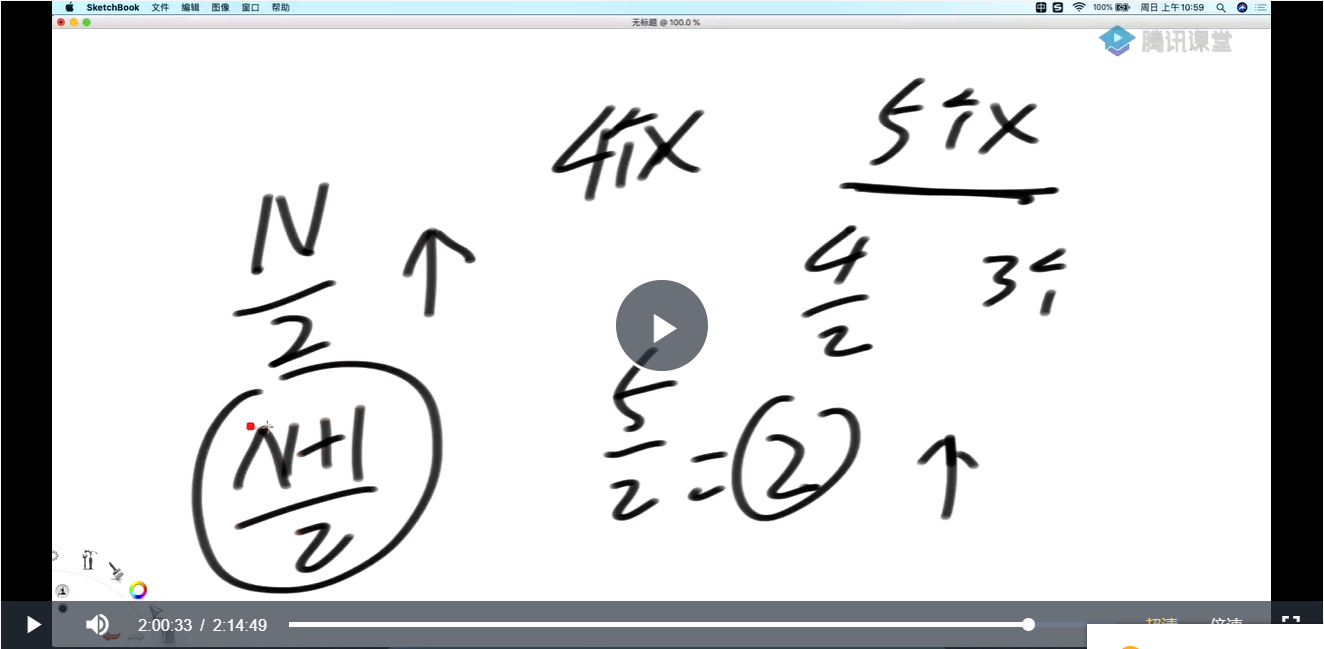 SketchBook 文件 编辑 图像 窗口 帮助 100% 周日 上午10:59
无标题 @ 100.0 %
腾讯课堂
4个X
5个X
N
2
↑
4
2
3个
5
2
=
2
↑
N+1
2
2:00:33 / 2:14:49